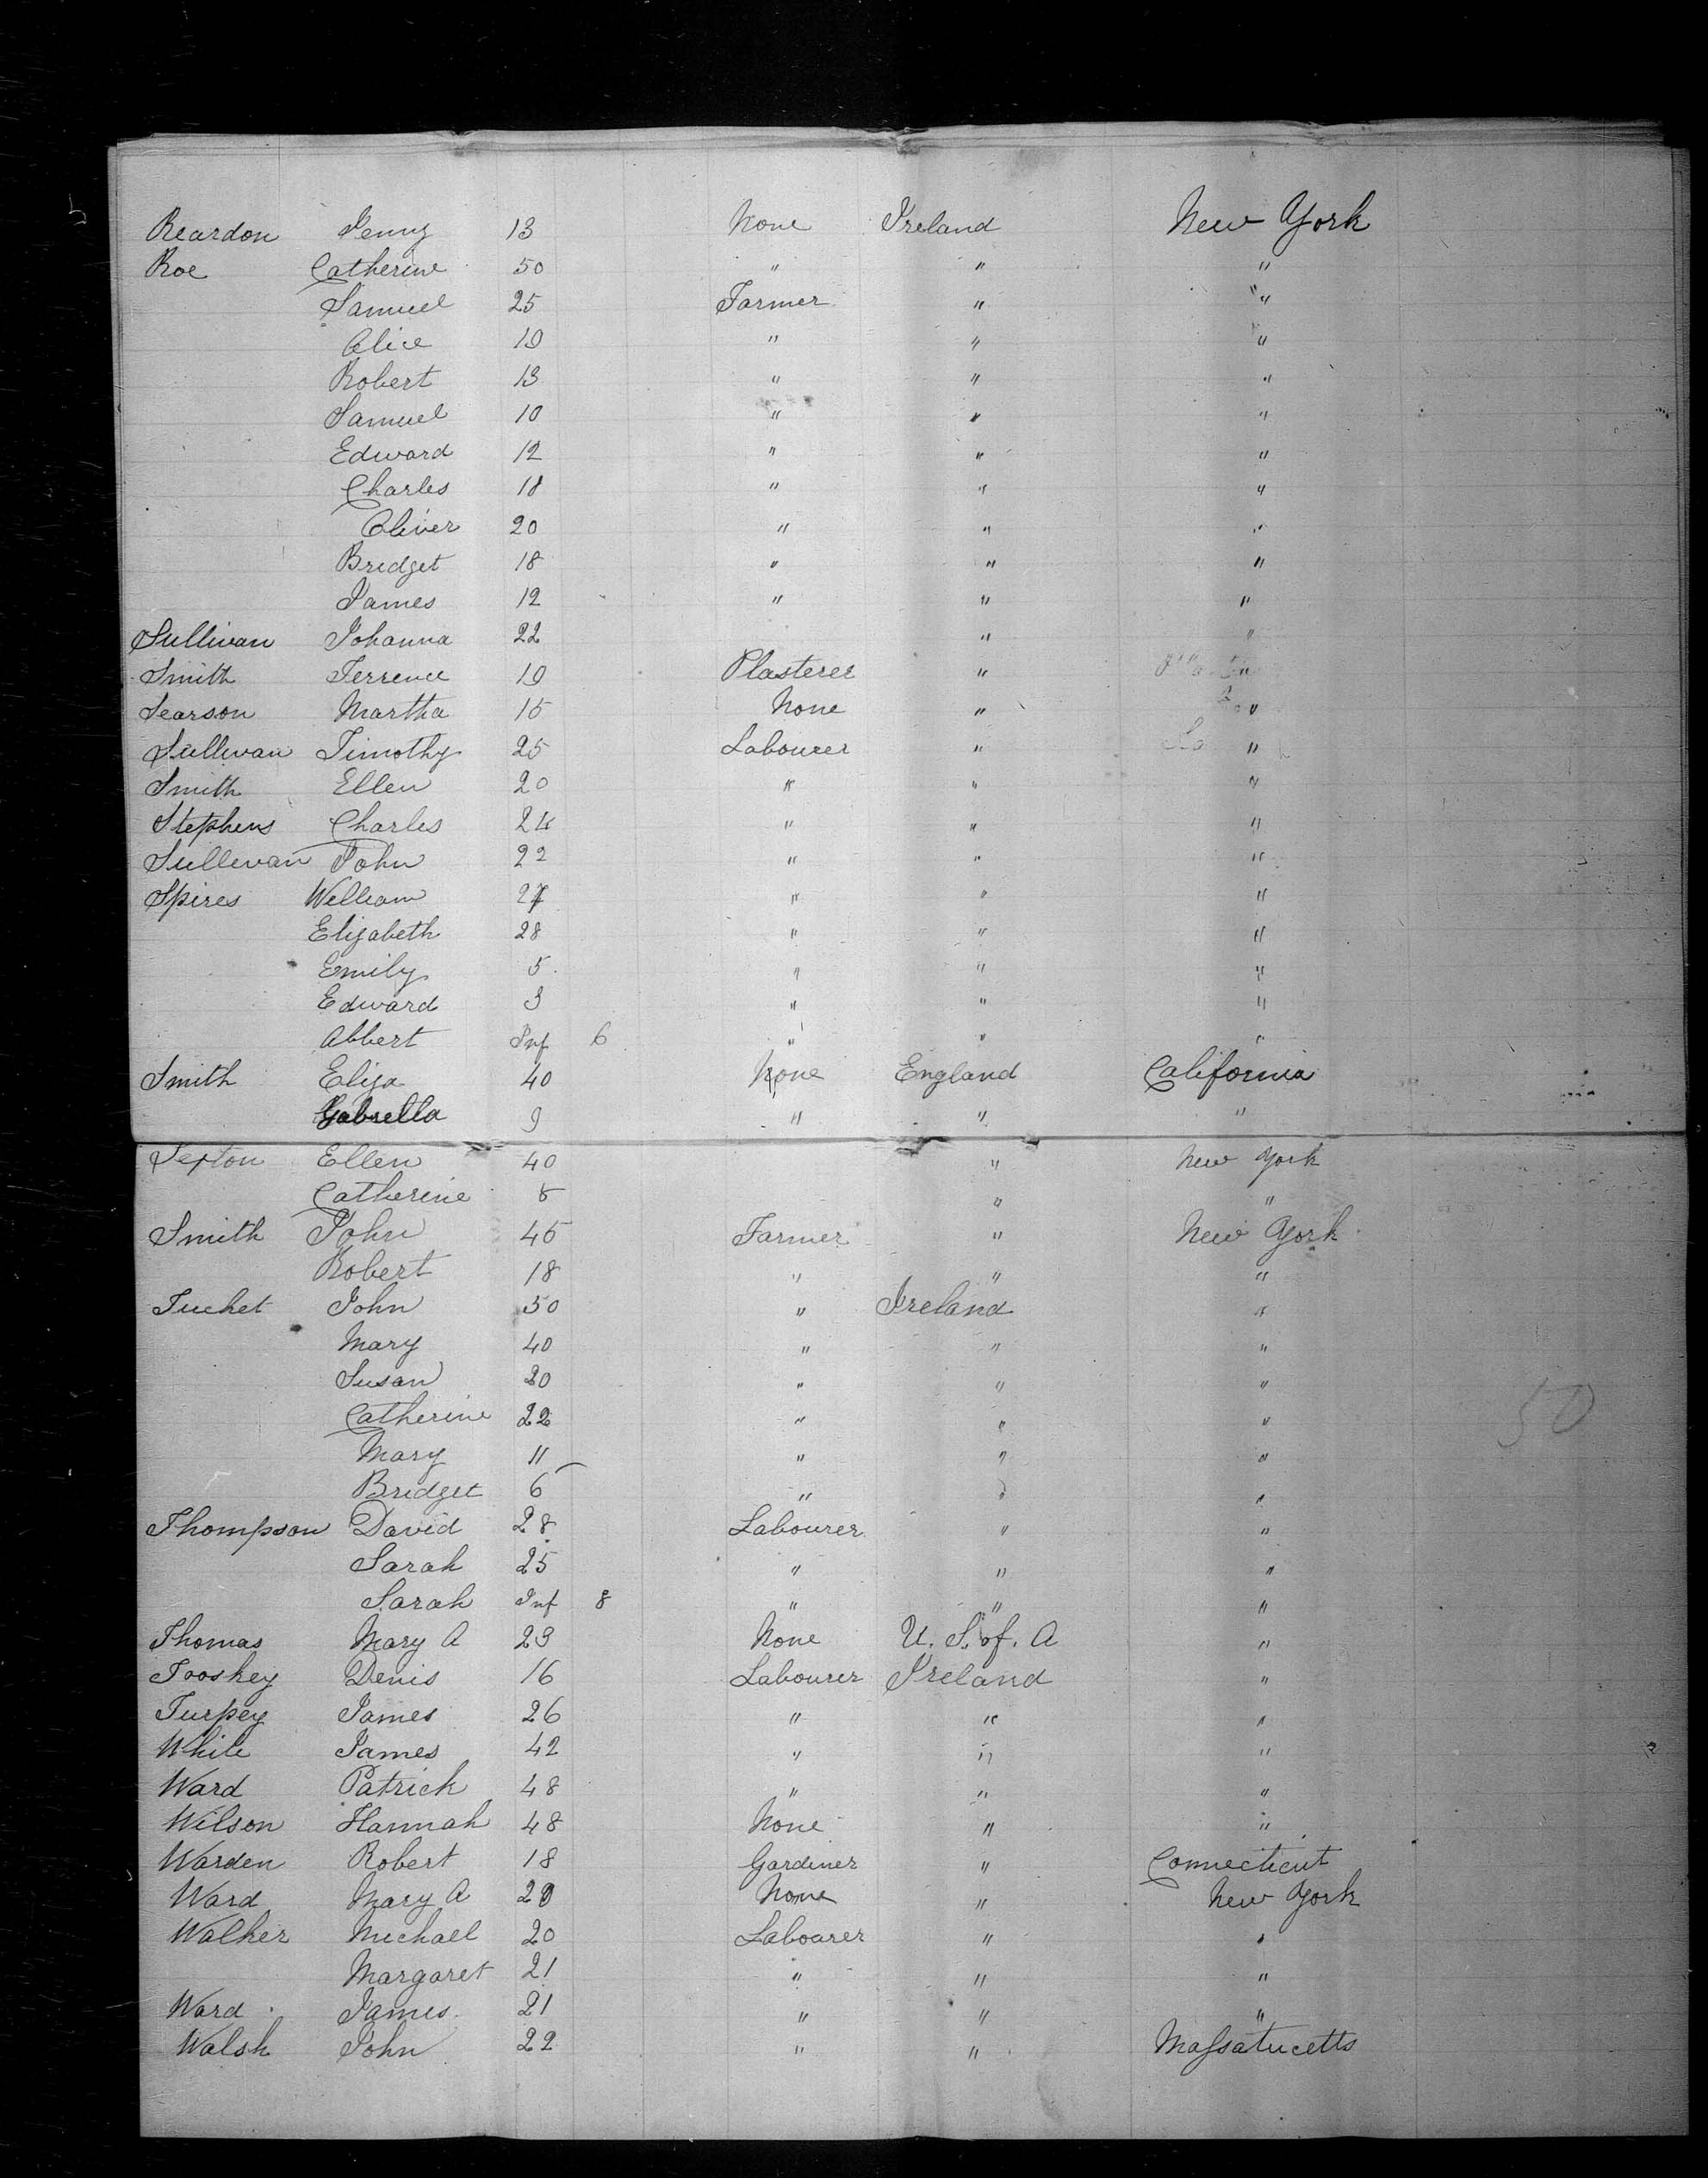 Reardon Jenny 13 None Ireland New York
Roe Catherine 50 " " "
Samuel 25 Farmer " "
Alice 19 " " "
Robert 13 " " "
Samuel 10 " " "
Edward 12 " " "
Charles 18 " " "
Oliver 20 " " "
Bridget 18 " " "
James 12 " " "
Sullivan Johanna 22 " "
Smith Terrence 19 Plasterer " "
Searson Martha 15 None " "
Sullivan Timothy 25 Labourer " "
Smith Ellen 20 " " "
Stephens Charles 24 " " "
Sullivan John 22 " " "
Spires William " " "
Elizabeth 28 " " "
Emily 5 " " "
Edward 3 " " "
Albert Inf 6 " " "
Smith Eliza 40 None England California
Gabrella 9 " " "
Sexton Ellen 40 " New York
Catherine " "
Smith John 45 Farmer " New York
Robert 18 " " "
Tuchet John 50 " Ireland "
Mary 40 " " "
Susan 20 " " "
Catherine 22 " " "
Mary 11 " " "
Bridget 6 " " "
Thompson David 28 Labourer " "
Sarah 25 " " "
Sarah Inf 8 " " "
Thomas Mary A 23 None U. S. of. A "
Tooskey Denis 16 Labourer Ireland "
Turpey James 26 " " "
White James 42 " " "
Ward Patrick 48 " " "
Wilson Hannah 48 None " "
Warden Robert 18 Gardiner " Connecticut
Ward Mary A None " New York
Walker Michael 20 Labourer " "
Margaret 21 " " "
Ward James 21 " " "
Walsh John 22 " " Massatucetts
50